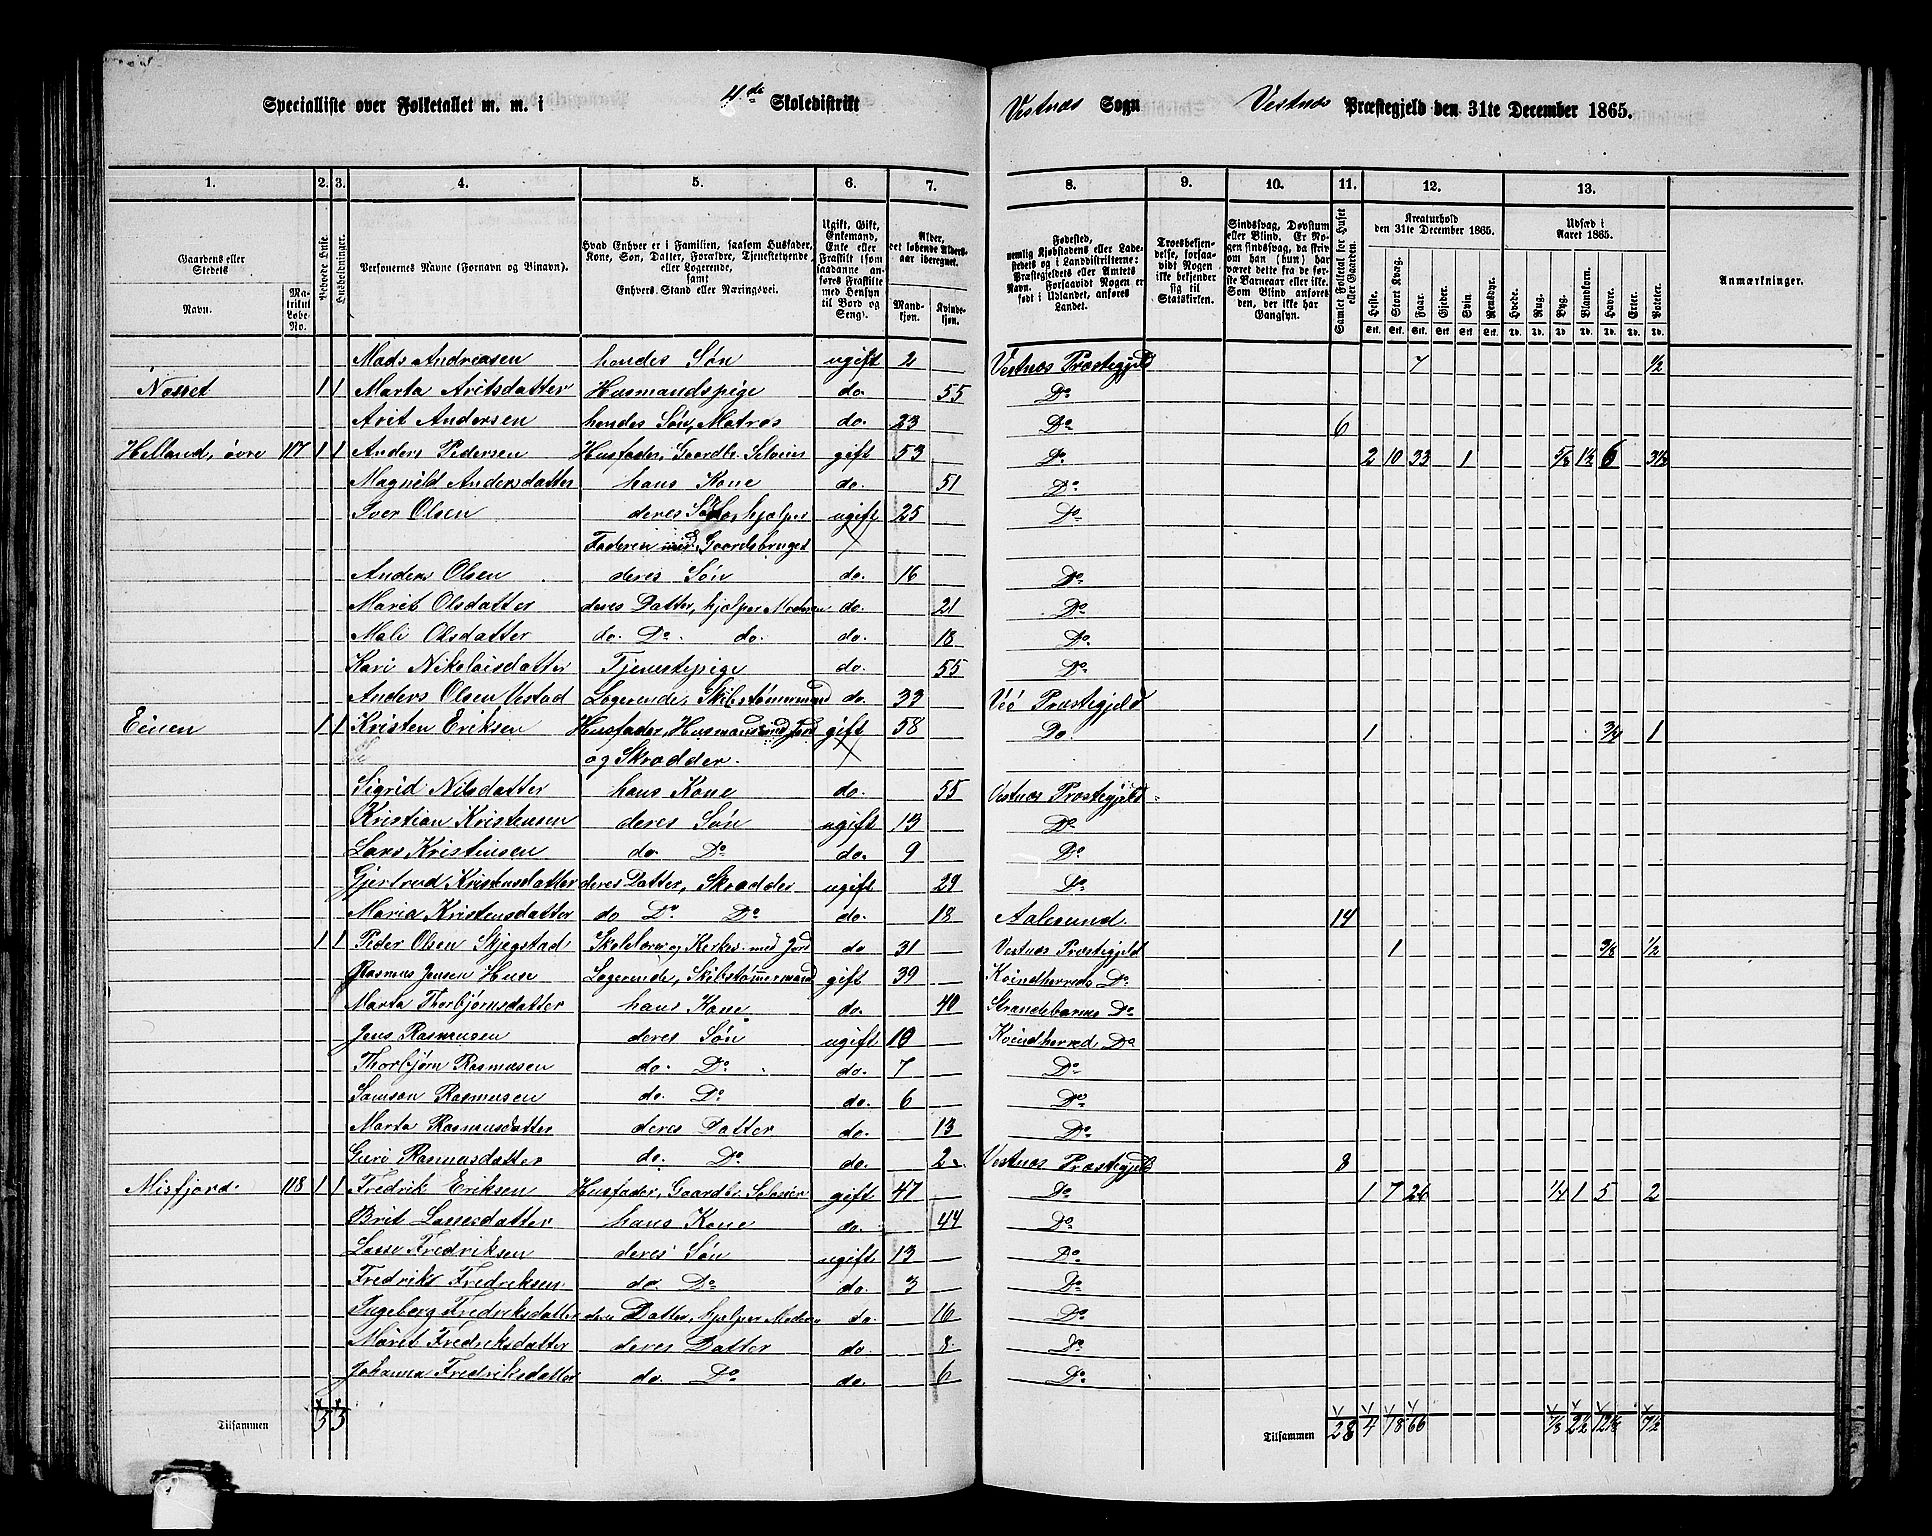 Specialliste over Folketallet m. m. i 4de Skoledistrikt Vestnæs Sogn Vestnæs Præstegjeld den 31te December 1865.
1. 2. 3. 4. 5. 6. 7. 8. 9. 10. 11. 12. 13.
Gaardens eller Stedets Navn. Matrikul Løbe-No. Bebode Huse. Husholdninger. Personernes Navne (Fornavn og Binavn). Hvad Enhver er i Familien, saasom Husfader, Kone, Søn, Datter, Forældre, Tjenestetyende eller Logerende, samt Enhvers Stand eller Næringsvei. Ugift, Gift, Enkemand, Enke eller Fraskilt (som saadanne anføres Fraskilte med Hensyn til Bord og Seng). Alder, det løbende Alders-aar iberegnet. Mandkjøn. Kvindekjøn. Fødested, nemlig Kjøbstadens eller Ladestedets og i Landdistrikterne: Præstegjeldets eller Amtets Navn. Forsaavidt Nogen er født i Udlandet, anføres Landet. Troesbekjendelse, forsaavidt Nogen ikke bekjender sig til Statskirken. Sindssvag, Døvstum eller Blind. Er Nogen sindssvag, da skriv om han (hun) har været dette fra de første Barneaar eller ikke. Som Blind anføres den, der ikke har Gangsyn. Samlet Folketal for Huset eller Gaarden. Kreaturhold den 31te December 1865. Heste. Stort Kvæg. Faar. Gjeder. Svin. Rensdyr. Udsæd i Aaret 1865. Hvede. Rug. Byg. Blandkorn. Havre. Erter. Poteter. Anmærkninger.
Mads Andreasen hendes Søn ugift 2 Vestnæs Præstegjeld 7 ½
Næsset 1 1 Marta Aritsdatter Husmandspige do. 55 Do
Arit Andersen hendes Søn, Matros do. 23 Do 6
Helland, øvre 117 1 1 Anders Pedersen Husfader, Gaardbr. Selveier gift 53 Do 2 10 33 1 5/8 1½ 6 3½
Magnild Andersdatter hans Kone do. 51 Do
Iver Olsen deres Søn, hjælper ugift 25 Do
Faderen med Gaardsbruget
Anders Olsen deres Søn do. 16 Do
Marit Olsdatter deres Datter, hjælper Moderen do. 21 Do
Mali Olsdatter do. Do. do. do. 18 Do
Kari Nikolaisdatter Tjenestepige do. 55 Do
Anders Olsen Vestad Logerende, Skibstømmermand do. 33 Veø Præstegjeld
Eiren 1 1 Kristen Eriksen Husfader, Husmand med Jord gift 58 Do 1 3/4 1
og Skrædder.
Sigrid Nilsdatter hans Kone do. 55 Vestnæs Præstegjeld
Kristian Kristensen deres Søn ugift 13 Do
Lars Kristensen do. Do do. 9 Do
Gjertrud Kristensdatter deres Datter, Skrædder ugift 29 Do
Maria Kristensdatter do Do Do do. 18 Aalesund. 14
1 1 Peder Olsen Skjegstad Skolelærer og Kirkes. med Jord do 31 Vestnæs Præstegjeld 1 3/8 ½
Rasmus Jensen Huse Logerende, Skibstømmermand gift 39 Kvindherreds Do
Marta Thorbjørnsdatter hans Kone do. 40 Strandebarms Do
Jens Rasmussen deres Søn ugift 10 Kvindherred Do
Thorbjørn Rasmusen do. Do do. 7 Do
Samson Rasmusen do. Do do. 6 Do
Marta Rasmusdatter deres Datter do. 13 Do
Guri Rasmusdatter do. Do do. 2 Vestnæs Præstegjeld 8
Misfjord 118 1 1 Fredrik Eriksen Husfader, Gaardbr. Selveier gift 47 Do 1 7 26 1/4 1 5 2
Brit Lassesdatter hans Kone do. 44 Do
Lasse Fredriksen deres Søn ugift 13 Do
Fredrik Fredriksen do. Do do. 3 Do
Ingeborg Fredriksdatter deres Datter, hjælper Moderen do. 16 Do
Marit Fredriksdatter deres Datter do. 8 Do
Johanna Fredriksdatter do. Do do. 6 Do
Tilsammen 5 5 Tilsammen 28 4 18 66 7/8 2½ 12⅛ 7½